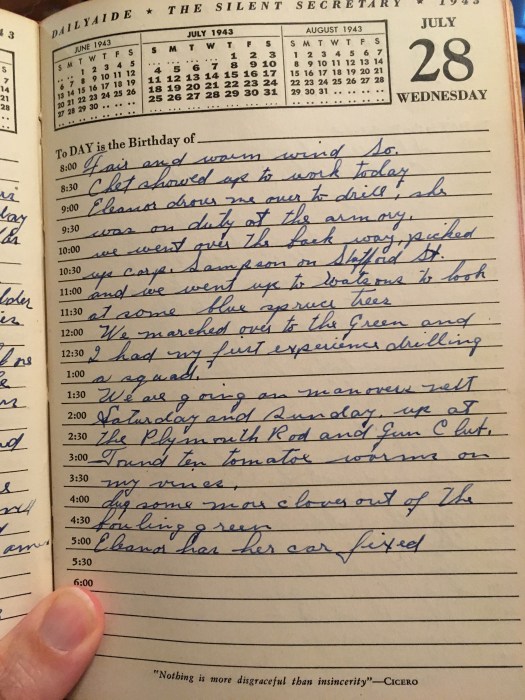 DAILYAIDE ★ THE SILENT SECRETARY ★ 1943
JUNE 1943
S M T W T F S
. . 1 2 3 4 5
6 7 8 9 10 11 12
13 14 15 16 17 18 19
20 21 22 23 24 25 26
27 28 29 30 . . .
JULY 1943
S M T W T F S
. . . . 1 2 3
4 5 6 7 8 9 10
11 12 13 14 15 16 17
18 19 20 21 22 23 24
25 26 27 28 29 30 31
AUGUST 1943
S M T W T F S
1 2 3 4 5 6 7
8 9 10 11 12 13 14
15 16 17 18 19 20 21
22 23 24 25 26 27 28
29 30 31 . . . .
JULY
28
WEDNESDAY
To DAY is the Birthday of
8:00 Fair and warm wind So.
8:30 Chet showed up to work today
9:00 Eleanor drove me over to drill, she
9:30 was on duty at the armory.
10:00 we went over the back way, picked
10:30 up corp. Sampson on Stafford St.
11:00 and we went up to Watsons to look
11:30 at some blue spruce trees
12:00 We marched over to the Green and
12:30 I had my first experience drilling
1:00 a squad.
1:30 We are going on manovers next
2:00 Saturday and Sunday. up at
2:30 the Plymouth Rod and Gun Club.
3:00 Found ten tomatoe worms on
3:30 my vines.
4:00 dug some more clover out of the
4:30 bowling green
5:00 Eleanor has her car fixed
5:30
6:00
"Nothing is more disgraceful than insincerity"—CICERO